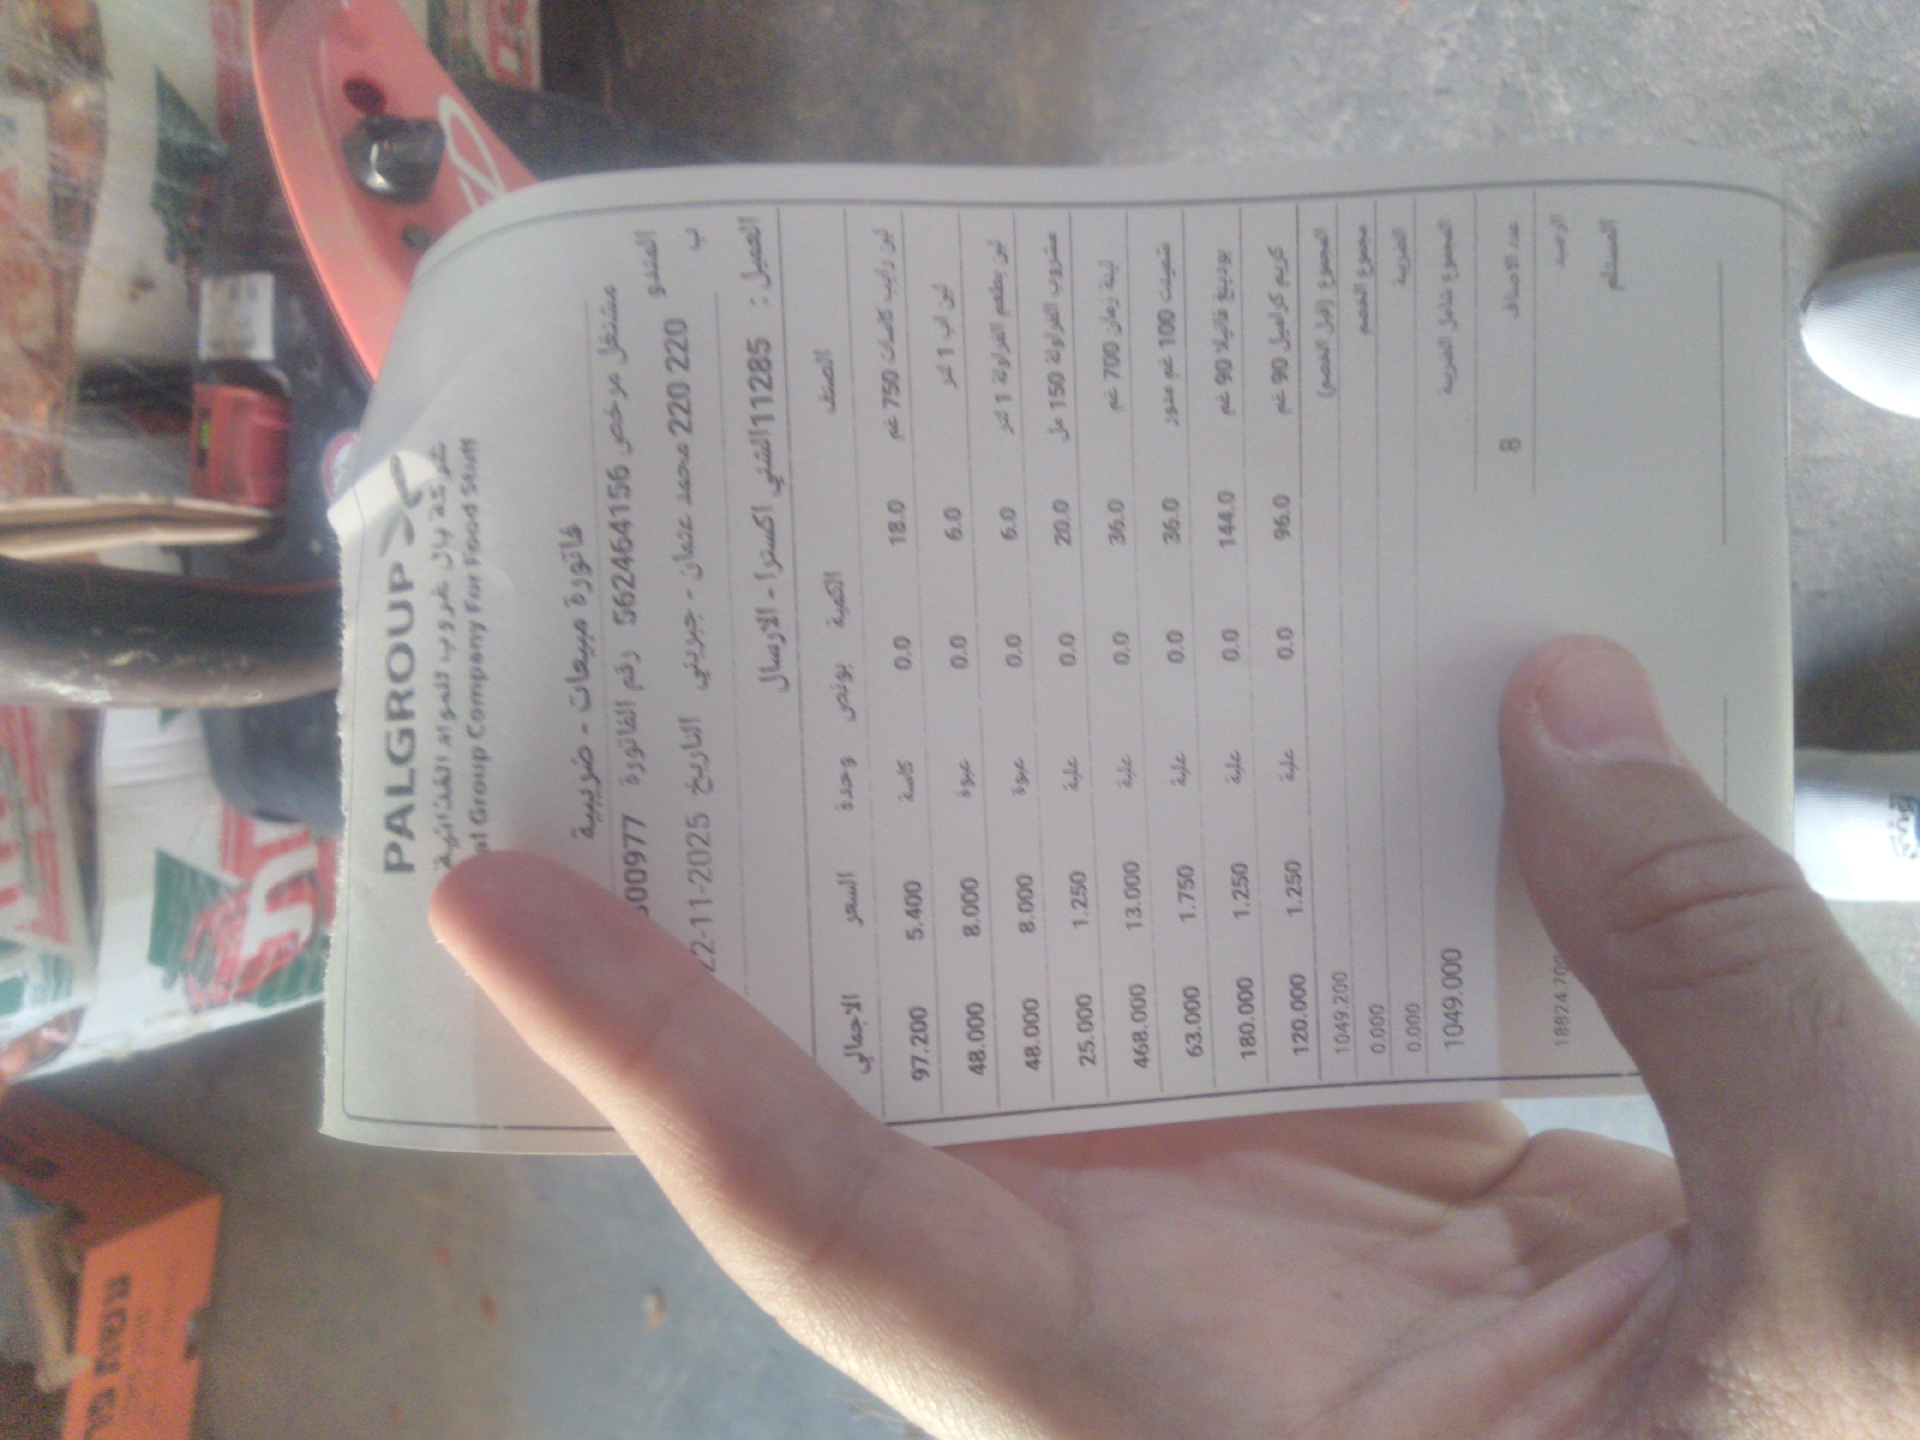 PALGROUP
شركة بال جروب للمواد الغذائية
al Group Company For Food Stuff
فاتورة مبيعات - ضريبية
مشتغل مرخص 562464156 رقم الفاتورة 00977
المندو 220 220 محمد عثمان - جبريني التاريخ 22-11-2025
ب
العميل : 11285الشني اكسترا - الارسال
الصنف الكمية بونص وحدة السعر الاجمالي
لبن رايب كاسات 750 غم 18.0 0.0 كاسة 5.400 97.200
لبن اب 1 لتر 6.0 0.0 عبوة 8.000 48.000
لبن بطعم الفراولة 1 لتر 6.0 0.0 عبوة 8.000 48.000
مشروب الفراولة 150 مل 20.0 0.0 علبة 1.250 25.000
لبنة زمان 700 غم 36.0 0.0 علبة 13.000 468.000
شمينت 100 غم مدور 36.0 0.0 علبة 1.750 63.000
بودينغ فانيلا 90 غم 144.0 0.0 علبة 1.250 180.000
كريم كراميل 90 غم 96.0 0.0 علبة 1.250 120.000
المجموع (قبل الخصم) 1049.200
مجموع الخصم 0.000
الضريبة 0.000
المجموع شامل الضريبة 1049.000
عدد الاصناف 8
الرصيد 18824.700
المستلم